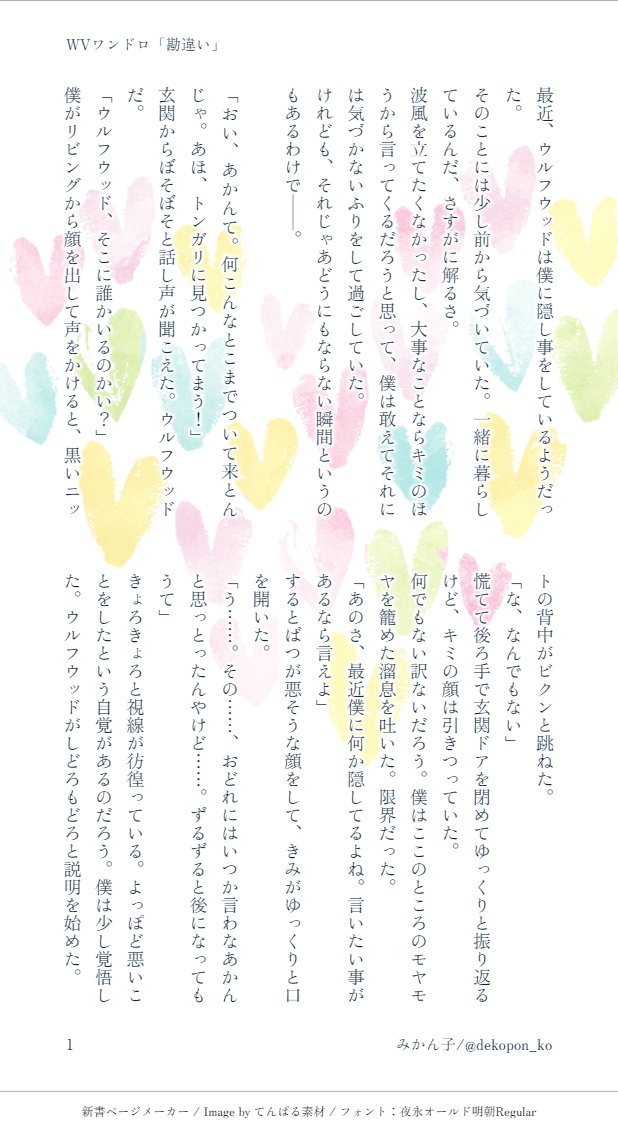 WVワンドロ「勘違い」
最近、ウルフウッドは僕に隠し事をしているようだっ
た。
そのことには少し前から気づいていた。一緒に暮らし
ているんだ、さすがに解るさ。
波風を立てたくなかったし、大事なことならキミのほ
うから言ってくるだろうと思って、僕は敢えてそれに
は気づかないふりをして過ごしていた。
けれども、それじゃあどうにもならない瞬間というの
もあるわけで――。
「おい、あかんて。何こんなとこまでついて来とん
じゃ。あほ、トンガリに見つかってまう！」
玄関からぼそぼそと話し声が聞こえた。ウルフウッド
だ。
「ウルフウッド、そこに誰かいるのかい？」
僕がリビングから顔を出して声をかけると、黒いニッ
トの背中がビクンと跳ねた。
「な、なんでもない」
慌てて後ろ手で玄関ドアを閉めてゆっくりと振り返る
けど、キミの顔は引きつっていた。
何でもない訳ないだろう。僕はここのところのモヤモ
ヤを籠めた溜息を吐いた。限界だった。
「あのさ、最近僕に何か隠してるよね。言いたい事が
あるなら言えよ」
するとばつが悪そうな顔をして、きみがゆっくりと口
を開いた。
「う……。その……、おどれにはいつか言わなあかん
と思っとったんやけど……。ずるずると後になっても
うて」
きょろきょろと視線が彷徨っている。よっぽど悪いこ
とをしたという自覚があるのだろう。僕は少し覚悟し
た。ウルフウッドがしどろもどろと説明を始めた。
1
みかん子/@dekopon_ko
新書ページメーカー / Image by てんぱる素材 / フォント：夜永オールド明朝Regular